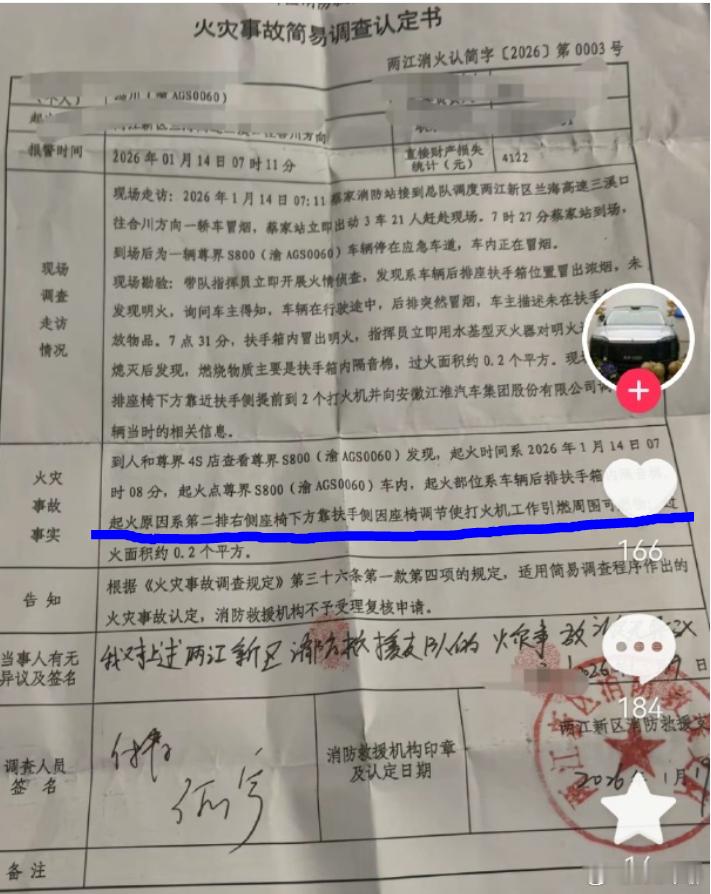 火灾事故简易调查认定书
两江消火认简字〔2026〕第 0003 号
AGS0060)
报警时间
2026 年 01 月 14 日 07 时 11 分
直接财产损失
统计(元)
4122
现场
调查
走访
情况
现场走访:2026 年 1 月 14 日 07:11 蔡家消防站接到总队调度两江新区兰海高速三溪口
往合川方向一轿车冒烟,蔡家站立即出动 3 车 21 人赶赴现场。7 时 27 分蔡家站到场,
到场后为一辆尊界 S800(渝 AGS0060)车辆停在应急车道,车内正在冒烟。
现场勘验:带队指挥员立即开展火情侦查,发现系车辆后排座扶手箱位置冒出浓烟,未
发现明火,询问车主得知,车辆在行驶途中,后排突然冒烟,车主描述未在扶手
放物品。7 点 31 分,扶手箱内冒出明火,指挥员立即用水基型灭火器对明火
熄灭后发现,燃烧物质主要是扶手箱内隔音棉,过火面积约 0.2 个平方。现
排座椅下方靠近扶手侧提前到 2 个打火机并向安徽江淮汽车集团股份有限公司调
辆当时的相关信息。
火灾
事故
事实
到人和尊界 4S 店查看尊界 S800(渝 AGS0060)发现,起火时间系 2026 年 1 月 14 日 07
时 08 分,起火点尊界 S800(渝 AGS0060)车内,起火部位系车辆后排扶手箱内隔音棉,
起火原因系第二排右侧座椅下方靠扶手侧因座椅调节使打火机工作引燃周围可
火面积约 0.2 个平方。
告 知
根据《火灾事故调查规定》第三十六条第一款第四项的规定,适用简易调查程序作出的
火灾事故认定,消防救援机构不予受理复核申请。
当事人有无
异议及签名
我对上述两江新区消防救援支队的火灾事故
2026 日
调查人员
签 名
消防救援机构印章
及认定日期
两江新区消防救援支
2026 年 1 月 19
备 注
166
184